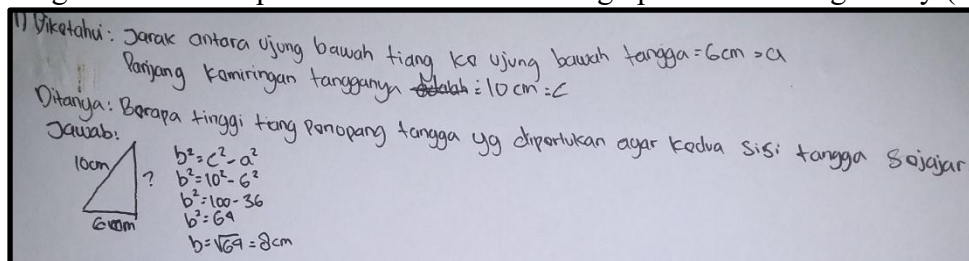 1) Diketahui: Jarak antara ujung bawah tiang ke ujung bawah tangga = 6cm = a
Panjang kemiringan tangganya adalah = 10 cm = c
Ditanya: Berapa tinggi tiang penopang tangga yg diperlukan agar kedua sisi tangga sejajar
Jawab:
10cm
?
6cm
b² = c² - a²
b² = 10² - 6²
b² = 100 - 36
b² = 64
b = √64 = 8cm